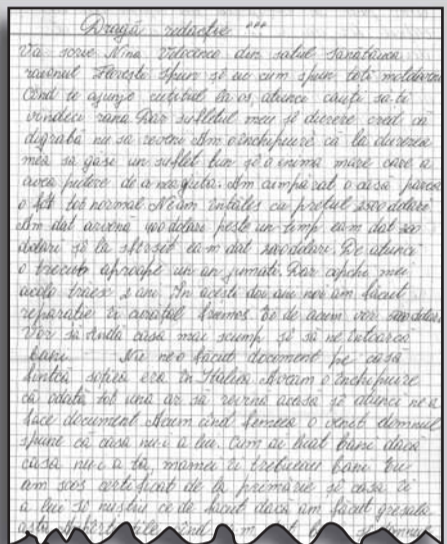 Dragă redacție ***
Vă scrie Nina Volocenco din satul Sănătăuca
raionul Florești spun și eu cum spun toți moldovenii
Cînd te ajunge cuțitul la os, atunci cauți să-ți
vindeci rana Dar sufletul meu și durere cred că
digrabă nu sa reveni Am o închipuire că la durerea
mea sa găsi un suflet bun și o inimă mare care a
avea putere de a ne ajuta. Am cumpărat o casă parcă
o fost tot normal Neam înțăles ca prețul 2500 dolari
Am dat arvonă 400 dolari peste un timp iam dat 200
dolari și la sfîrșit iam dat dolari. De atunci
o trecut aproape un an jumati. Dar copchii mei
acolo trăesc 2 ani. În acești doi ani noi am făcut
reparație și curatul frumos Ei de acum vor
Vor să vîndă casa mai scump și să ne întoarcă
bani. Nu neo făcut document pe casă
fiintcă soția era în Italia Aveam o închipuire
că odată tot una ar să revină acasă și atunci ne a
face document Acum cînd femeea o venit domnul
spune că casa nu-i a lui. Cum ai luat bani dacă
casa nu-i a ta, mamei îi trebuieau bani Eu
am scos certificat de la primărie și casa îi
a lui și nuștiu ce de făcut dacă am făcut greșala
asta cînd